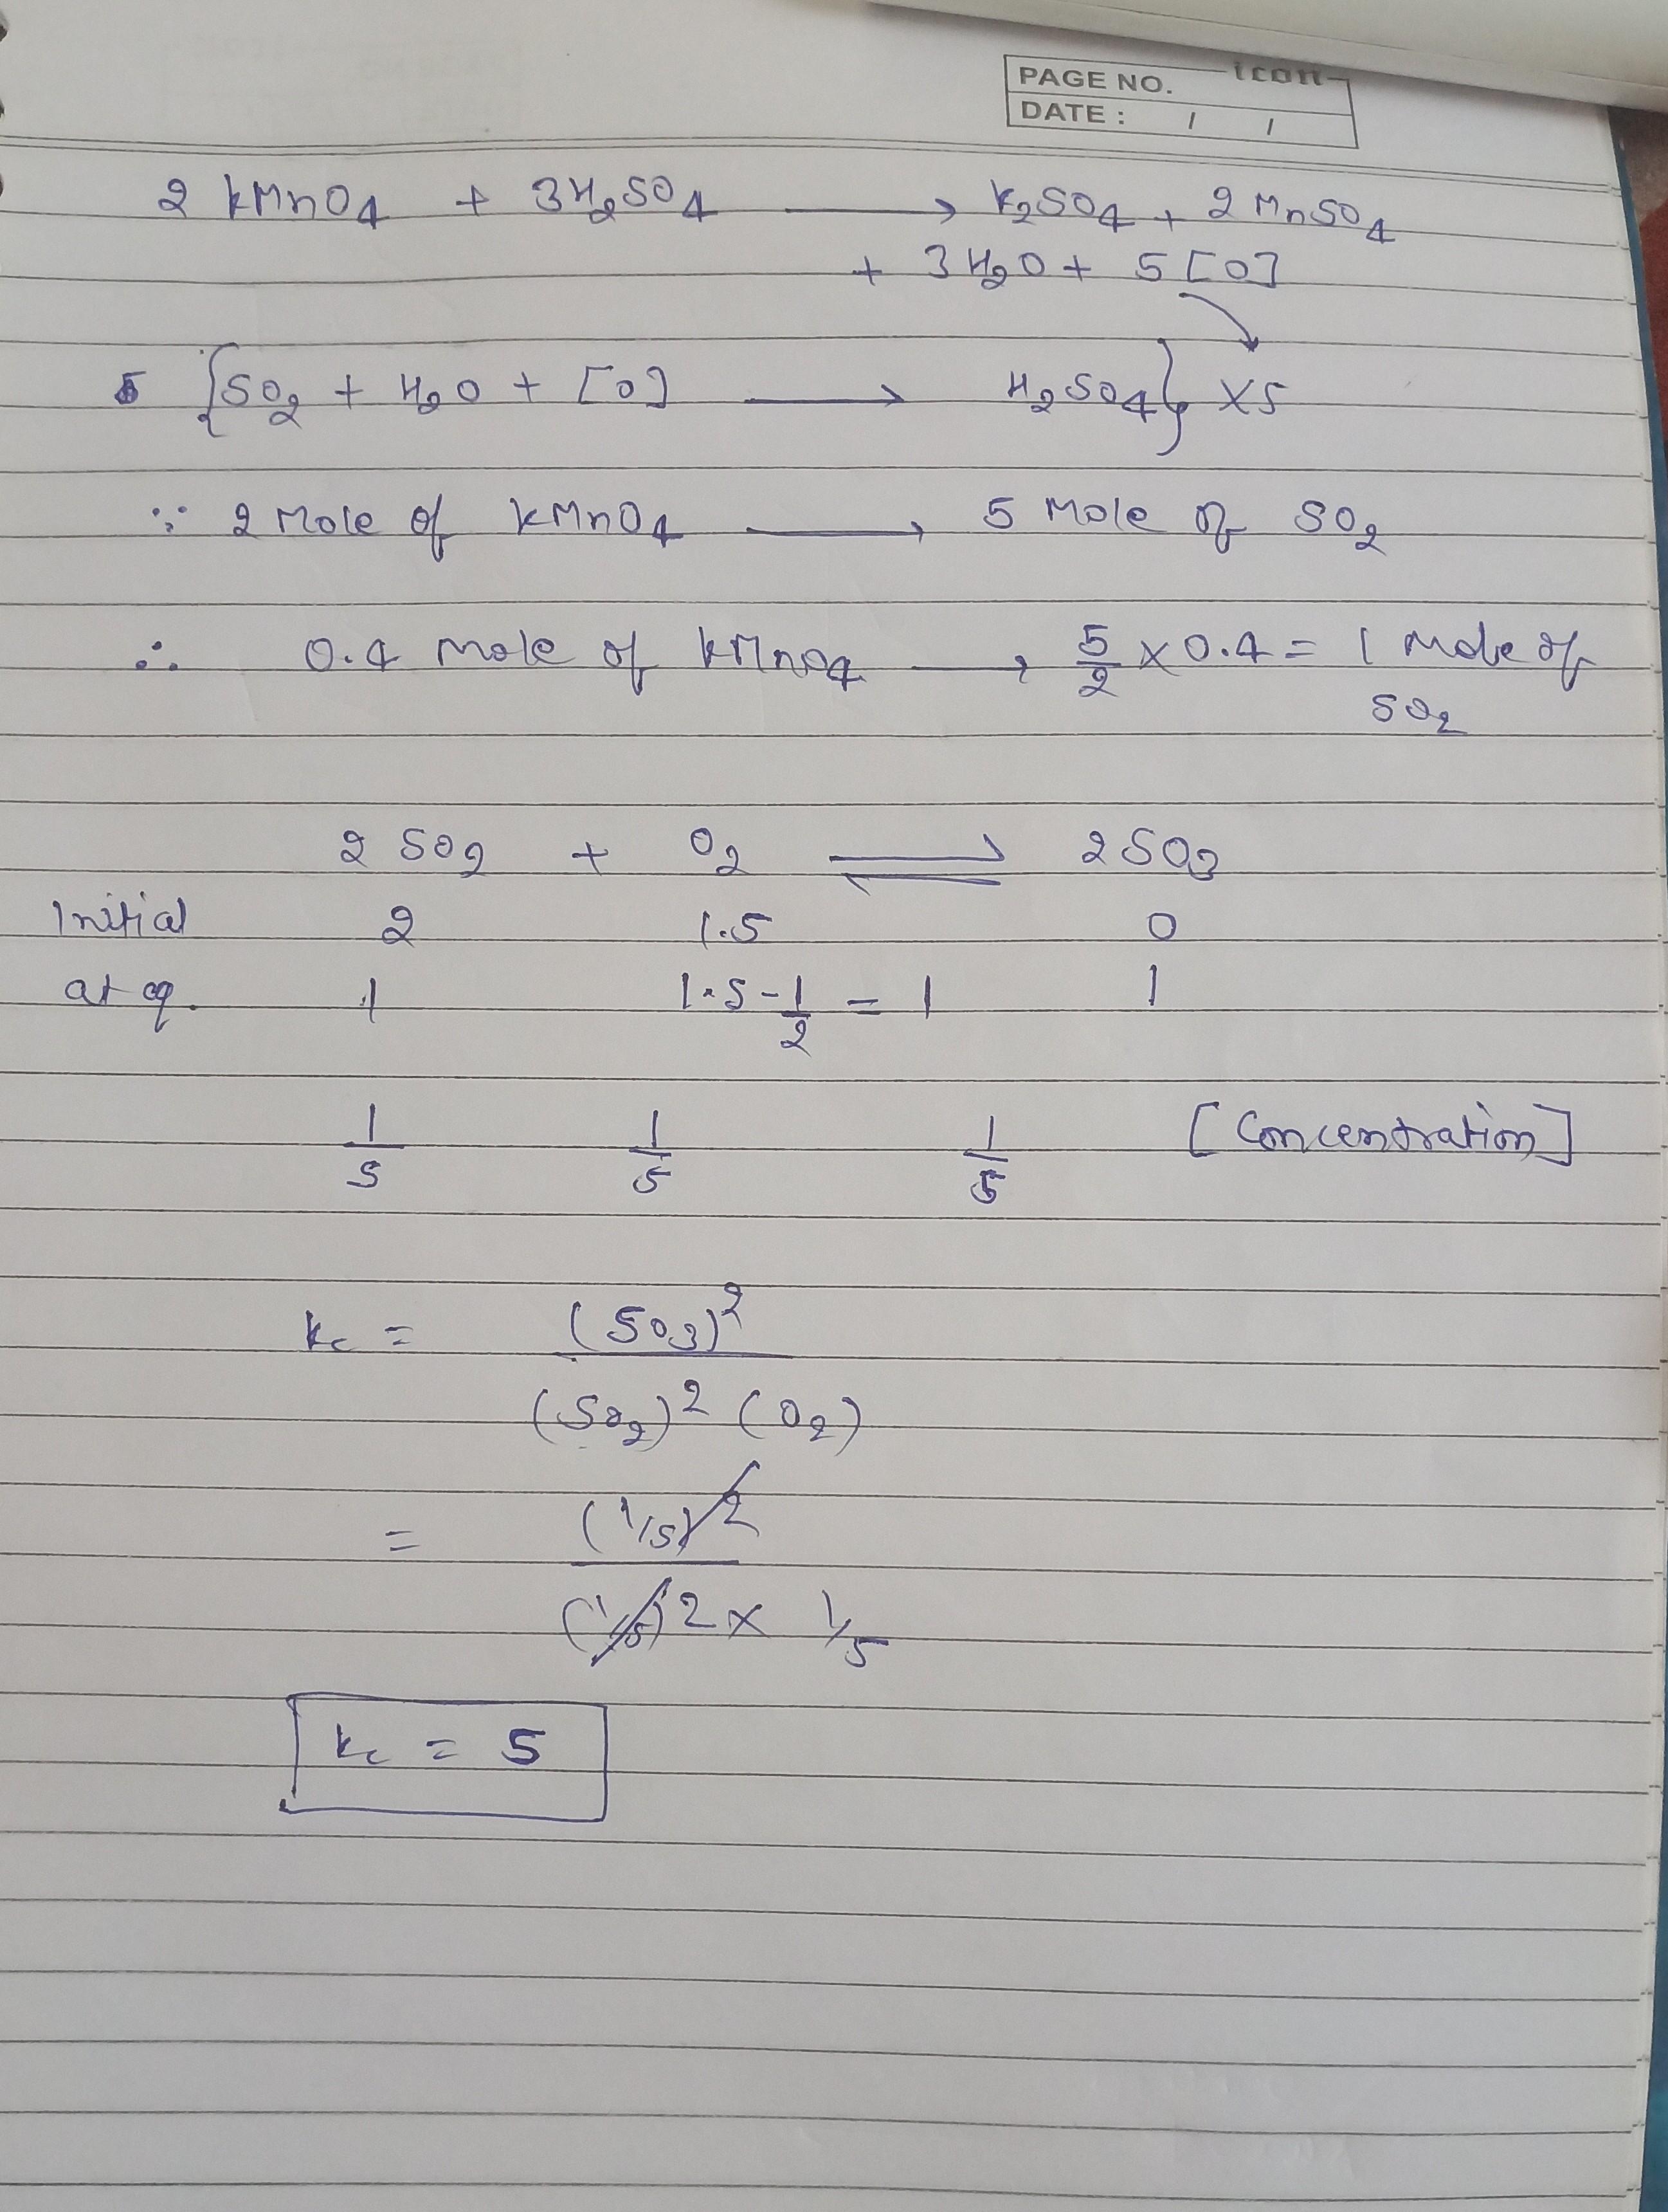 PAGE NO. icon
DATE : / /
2 KMnO4 + 3H2SO4 ⟶ K2SO4 + 2 MnSO4
+ 3H2O + 5[O]
5 {SO2 + H2O + [O] ⟶ H2SO4} x5
∵ 2 Mole of KMnO4 ⟶ 5 Mole of SO2
∴ 0.4 mole of KMnO4 ⟶ 5/2 x 0.4 = 1 Mole of
SO2
2 SO2 + O2 ⇌ 2SO3
Initial 2 1.5 0
at eq. 1 1.5 - 1/2 = 1 1
1/5 1/5 1/5 [Concentration]
kc = (SO3)2
(SO2)2 (O2)
= (1/5)2
(1/5)2 x 1/5
kc = 5